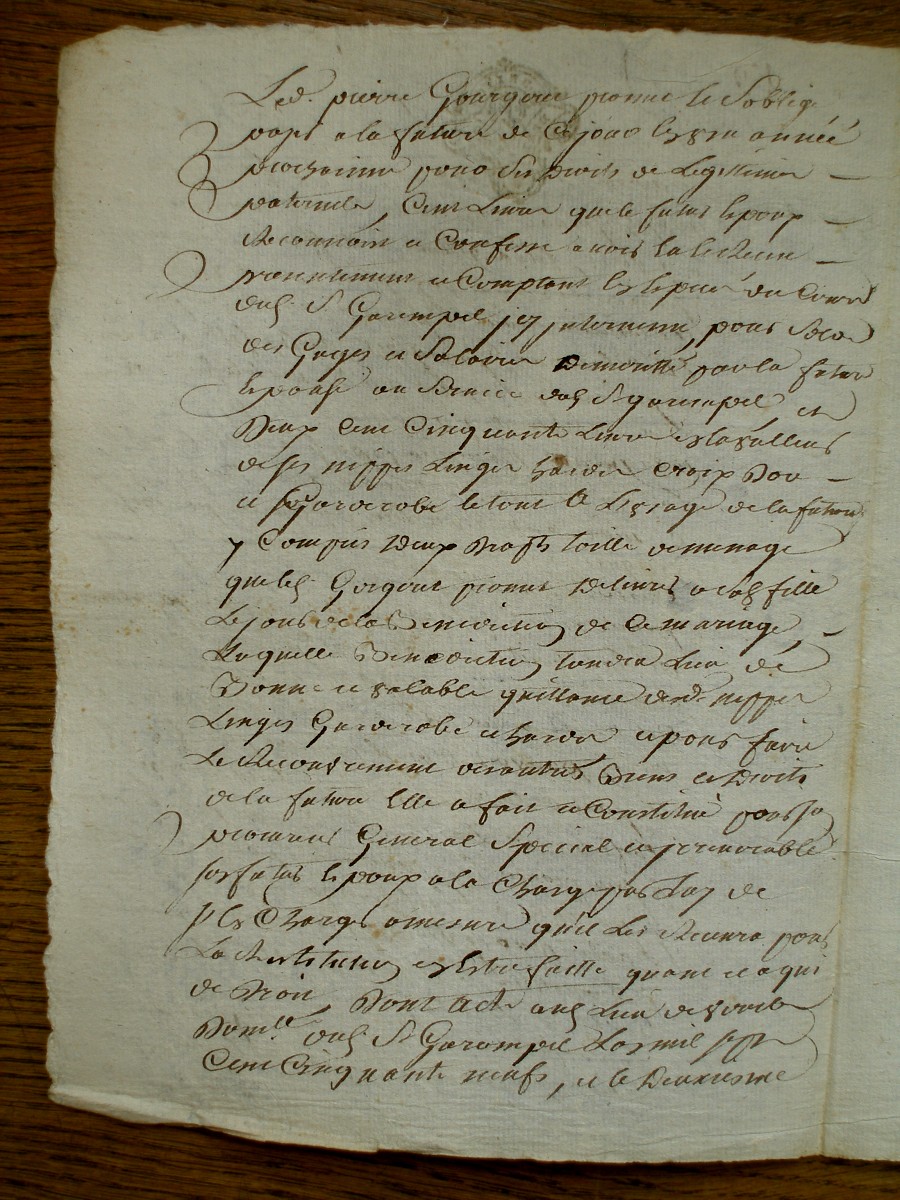 Led. pierre Gourgout promet et s'oblige
payer a la future de ce jour en un année
prochaine pour ses droits de Legitime
paternelle, Cent Livres que le futur Epoux
Reconnoit et Confesse avoir
presentement et Comptant en especes du Cours
dud. Sr. Garempel icy intervenu, pour solde
des Gages et Salaires par la future
Epouse au service dud. Sr. garempel, et
Deux Cent Cinquante Livres en la valleur
de ses nippes Linges hardes Croix Dor
et Garderobe le tout a Lusage de la future
y Compris Deux Draps toille de menage
que led. Gorgout promet Delivrer a sad. fille
Le jour de la Benediction de Ce mariage,
Laquelle Benediction tiendra Lieu de
Bonne et valable quittance desd. nippes
Linges Garderobe et hardes et pour faire
Le Recouvrement des autres Biens et Droits
de la future Elle a fait et Constitué pour son
procureur General Special et irrevocable
led. futur Epoux a la Charge par Luy de
s'en Charger a mesure qu'il Les Recevra pour
La Restitution en Estre faitte quant et a qui
de Droit, Dont acte au Lieu de
Domle. dud. Sr. Garempel Lan mil sept
Cent Cinquante neuf, et le Deuxiesme